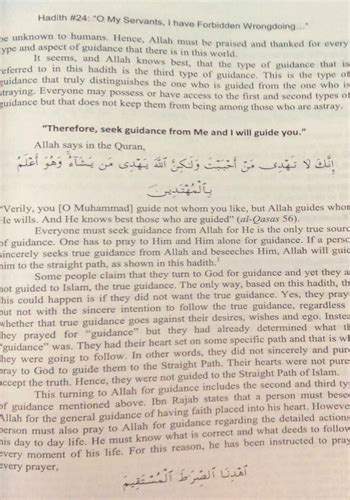 Hadith #24: "O My Servants, I have Forbidden Wrongdoing..."
be unknown to humans. Hence, Allah must be praised and thanked for every
type and aspect of guidance that there is in this world.
It seems, and Allah knows best, that the type of guidance that is
referred to in this hadith is the third type of guidance. This is the type of
guidance that truly distinguishes the one who is guided from the one who is
straying. Everyone may possess or have access to the first and second types of
guidance but that does not keep them from being among those who are astray.
"Therefore, seek guidance from Me and I will guide you."
Allah says in the Quran,
إِنَّكَ لَا تَهْدِى مَنْ أَحْبَبْتَ وَلَٰكِنَّ ٱللَّهَ يَهْدِى مَن يَشَآءُ وَهُوَ أَعْلَمُ
بِٱلْمُهْتَدِينَ
"Verily, you [O Muhammad] guide not whom you like, but Allah guides whom
He wills. And He knows best those who are guided" (al-Qasas 56).
Everyone must seek guidance from Allah for He is the only true source
of guidance. One has to pray to Him and Him alone for guidance. If a person
sincerely seeks true guidance from Allah and beseeches Him, Allah will guide
him to the straight path, as shown in this hadith.
Some people claim that they turn to God for guidance and yet they are
not guided to Islam, the true guidance. The only way, based on this hadith, that
this could happen is if they did not want the true guidance. Yes, they pray
but not with the sincere intention to follow the true guidance, regardless
whether that true guidance goes against their desires, wishes and ego. Instead
they prayed for "guidance" but they had already determined what the
"guidance" was. They had their heart set on some specific path and that is what
they were going to follow. In other words, they did not sincerely and purely
pray to God to guide them to the Straight Path. Their hearts were not pure
accept the truth. Hence, they were not guided to the Straight Path of Islam.
This turning to Allah for guidance includes the second and third type
of guidance mentioned above. Ibn Rajab states that a person must beseech
Allah for the general guidance of having faith placed into his heart. However
person must also pray to Allah for guidance regarding the detailed actions
his day to day life. He must know what is correct and what deeds to follow
every moment of his life. For this reason, he has been instructed to pray
every prayer,
ٱهْدِنَا ٱلصِّرَٰطَ ٱلْمُسْتَقِيمَ